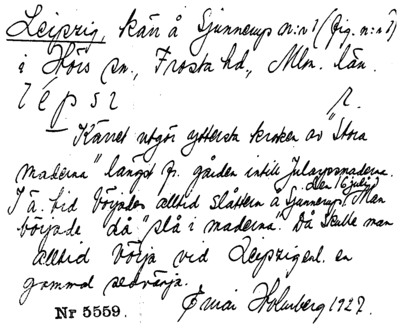 Leipzig, kärr å Sjunnerup n:r 1 (fig. n:o 1)
i Hörs sn., Frosta hd., Mlm. län.
lépsı r.
Kärret utgör yttersta kroken av "Stora
maderna" längst fr. gården intill Jularpsmaderna.
I ä. tid började alltid slåttern å Sjunnerup den 16 juli. Man
började då "slå i maderna". Då skulle man
alltid börja vid Leipzig enl. en
gammal sedvänja.
Einar Holmberg 1927.
Nr 5559.